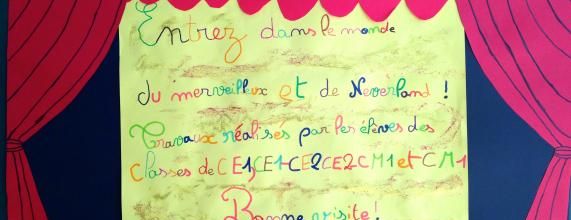 Entrez dans le monde
du merveilleux et de Neverland !
Travaux réalisés par les élèves des
classes de CE1, CE1-CE2 CE2 CM1 et CM1
Bonne visite !